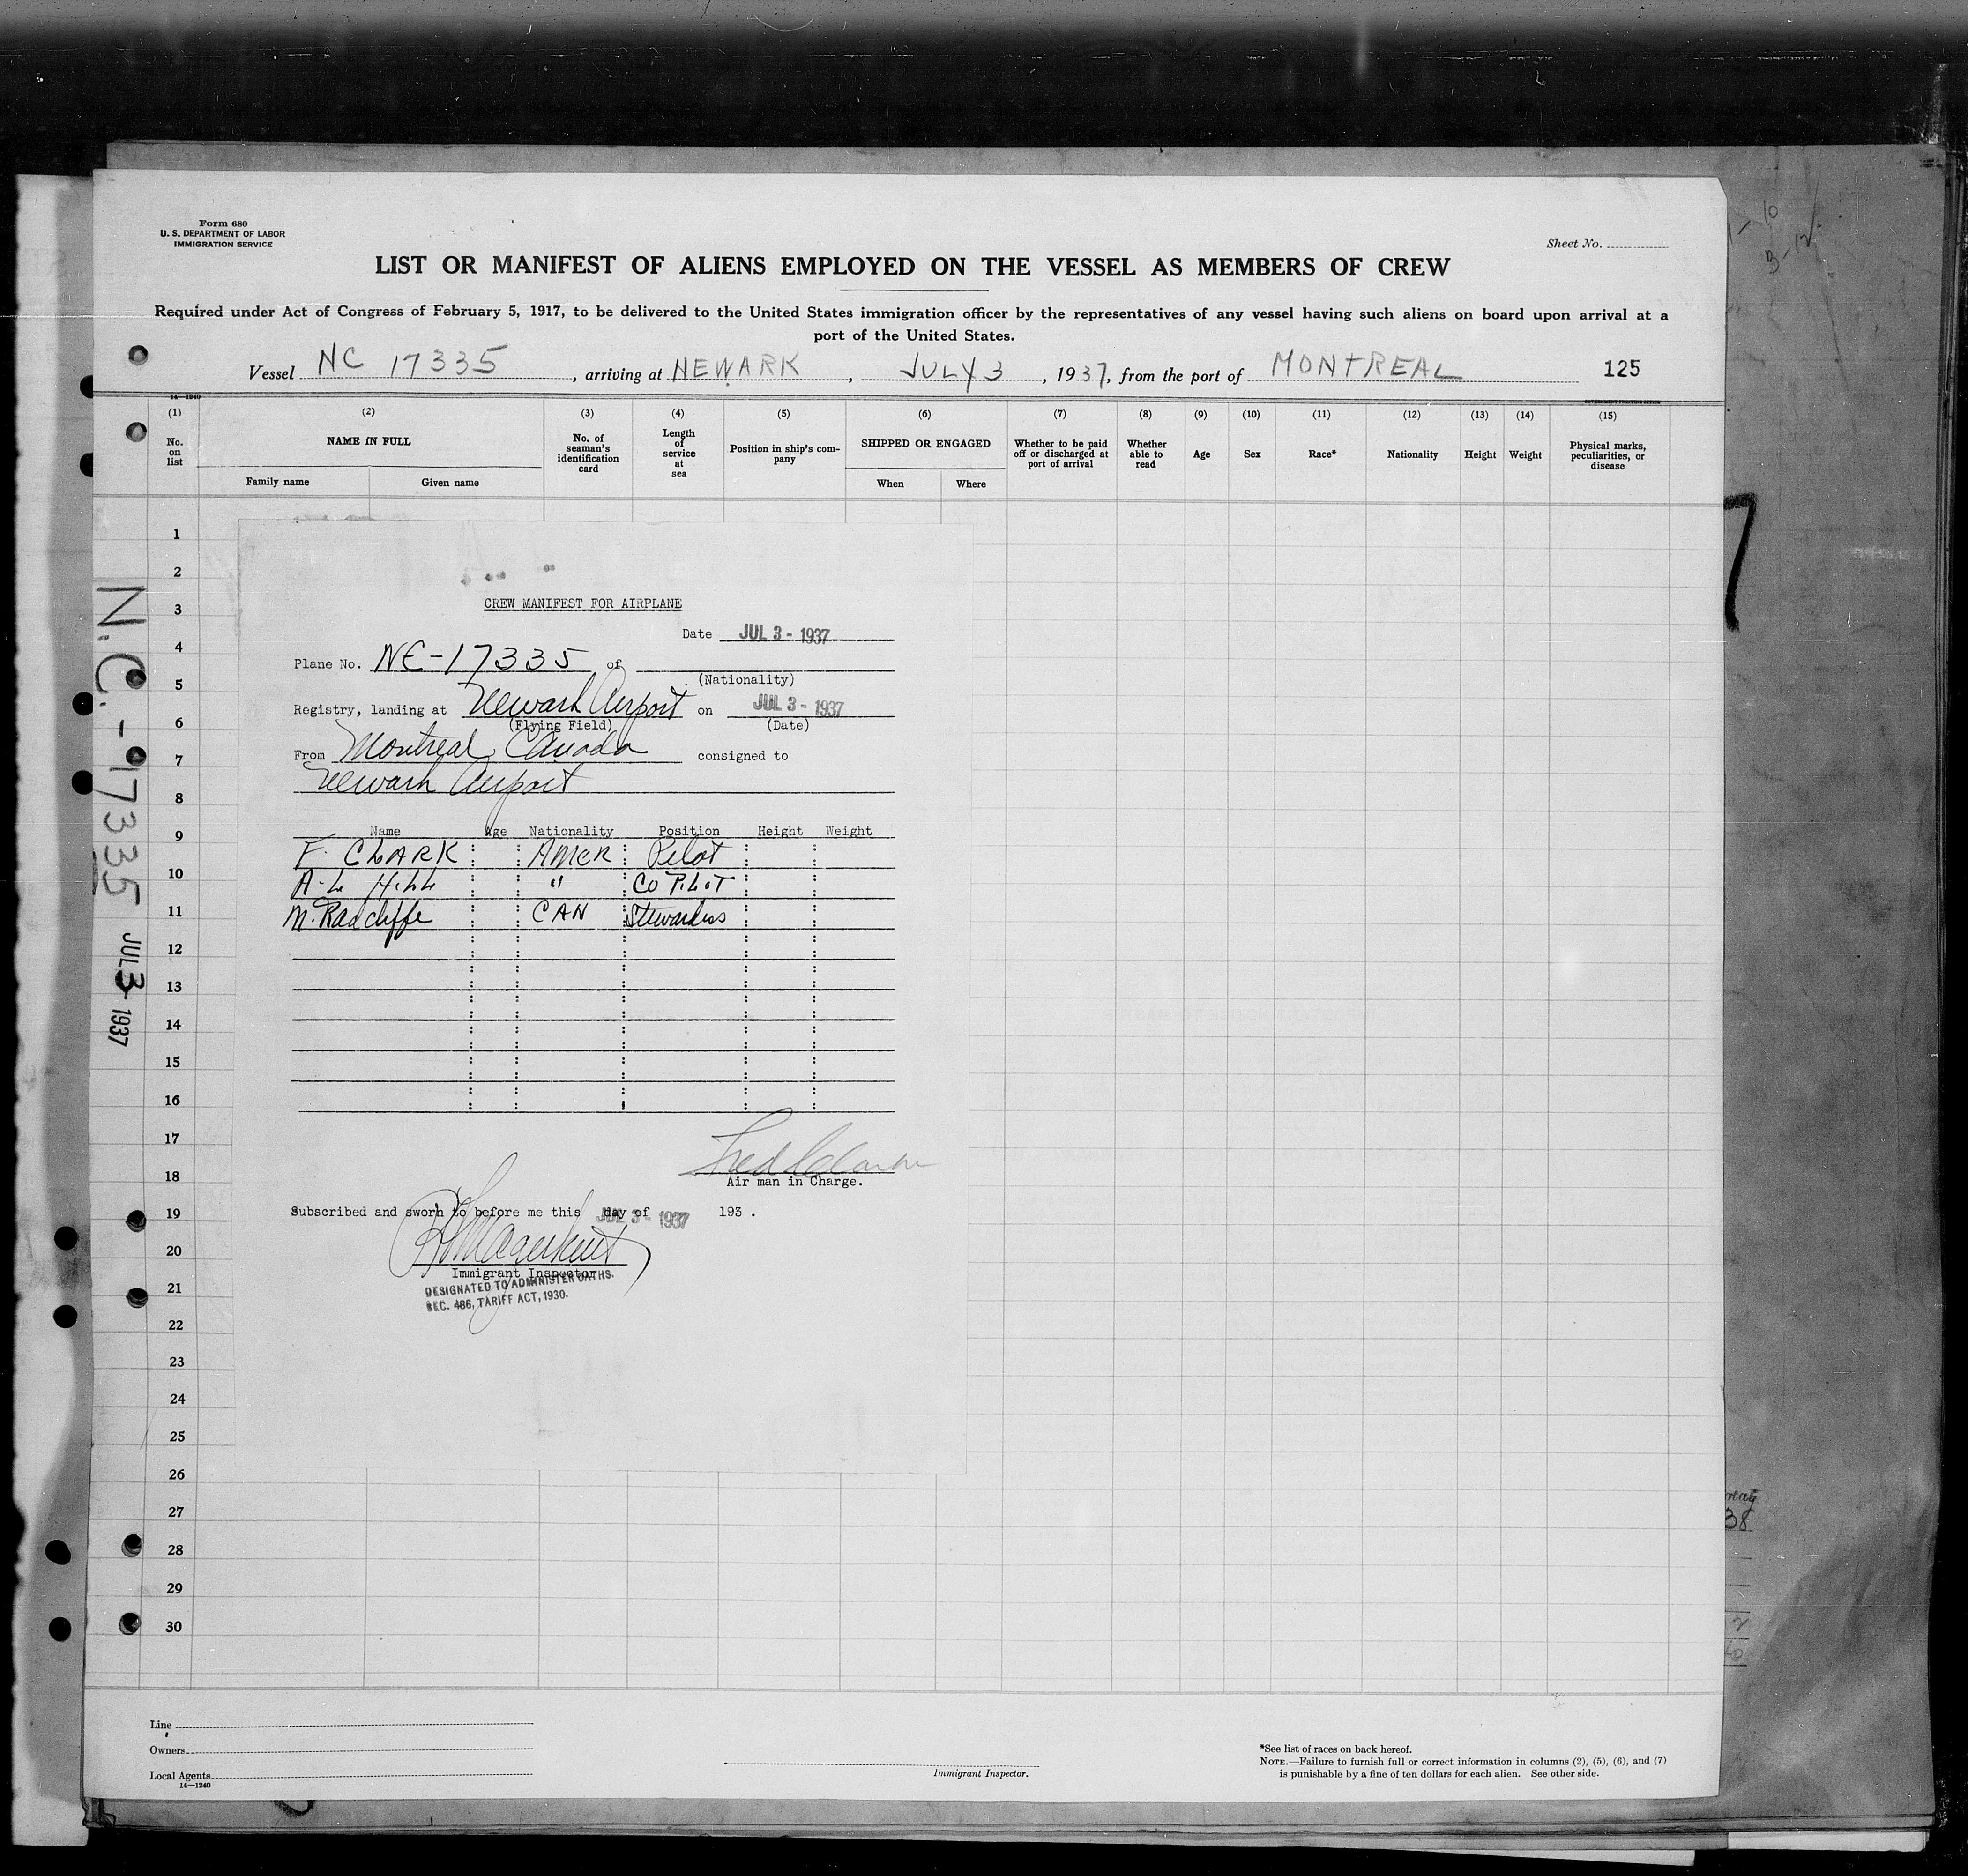 Form 680
U. S. DEPARTMENT OF LABOR
IMMIGRATION SERVICE
Sheet No.
LIST OR MANIFEST OF ALIENS EMPLOYED ON THE VESSEL AS MEMBERS OF CREW
Required under Act of Congress of February 5, 1917, to be delivered to the United States immigration officer by the representatives of any vessel having such aliens on board upon arrival at a
port of the United States.
Vessel NC 17335, arriving at NEWARK, JULY 3, 1937, from the port of MONTREAL 125
14—1240
(1) (2) (3) (4) (5) (6) (7) (8) (9) (10) (11) (12) (13) (14) (15)
No. on list
NAME IN FULL
Family name Given name
No. of seaman's identification card
Length of service at sea
Position in ship's company
SHIPPED OR ENGAGED
When Where
Whether to be paid off or discharged at port of arrival
Whether able to read
Age
Sex
Race*
Nationality
Height
Weight
Physical marks, peculiarities, or disease
1
2
3
4
5
6
7
8
9
10
11
12
13
14
15
16
17
18
19
20
21
22
23
24
25
26
27
28
29
30
N.C.-17335 JUL 3 1937
CREW MANIFEST FOR AIRPLANE
Date JUL 3 - 1937
Plane No. NC-17335 of
(Nationality)
Registry, landing at Newark Airport on JUL 3 - 1937
(Flying Field) (Date)
From Montreal, Canada consigned to
Newark Airport
Name Age Nationality Position Height Weight
F. CLARK AMER Pilot
A-L Hill " CO PiLOT
M. Radcliffe CAN Stewardess
Fred Clark
Air man in Charge.
Subscribed and sworn to before me this day of JUL 3 - 1937 193 .
Immigrant Inspector
DESIGNATED TO ADMINISTER OATHS.
SEC. 486, TARIFF ACT, 1930.
Line
Owners
Local Agents
14—1240
Immigrant Inspector.
*See list of races on back hereof.
NOTE.—Failure to furnish full or correct information in columns (2), (5), (6), and (7)
is punishable by a fine of ten dollars for each alien. See other side.